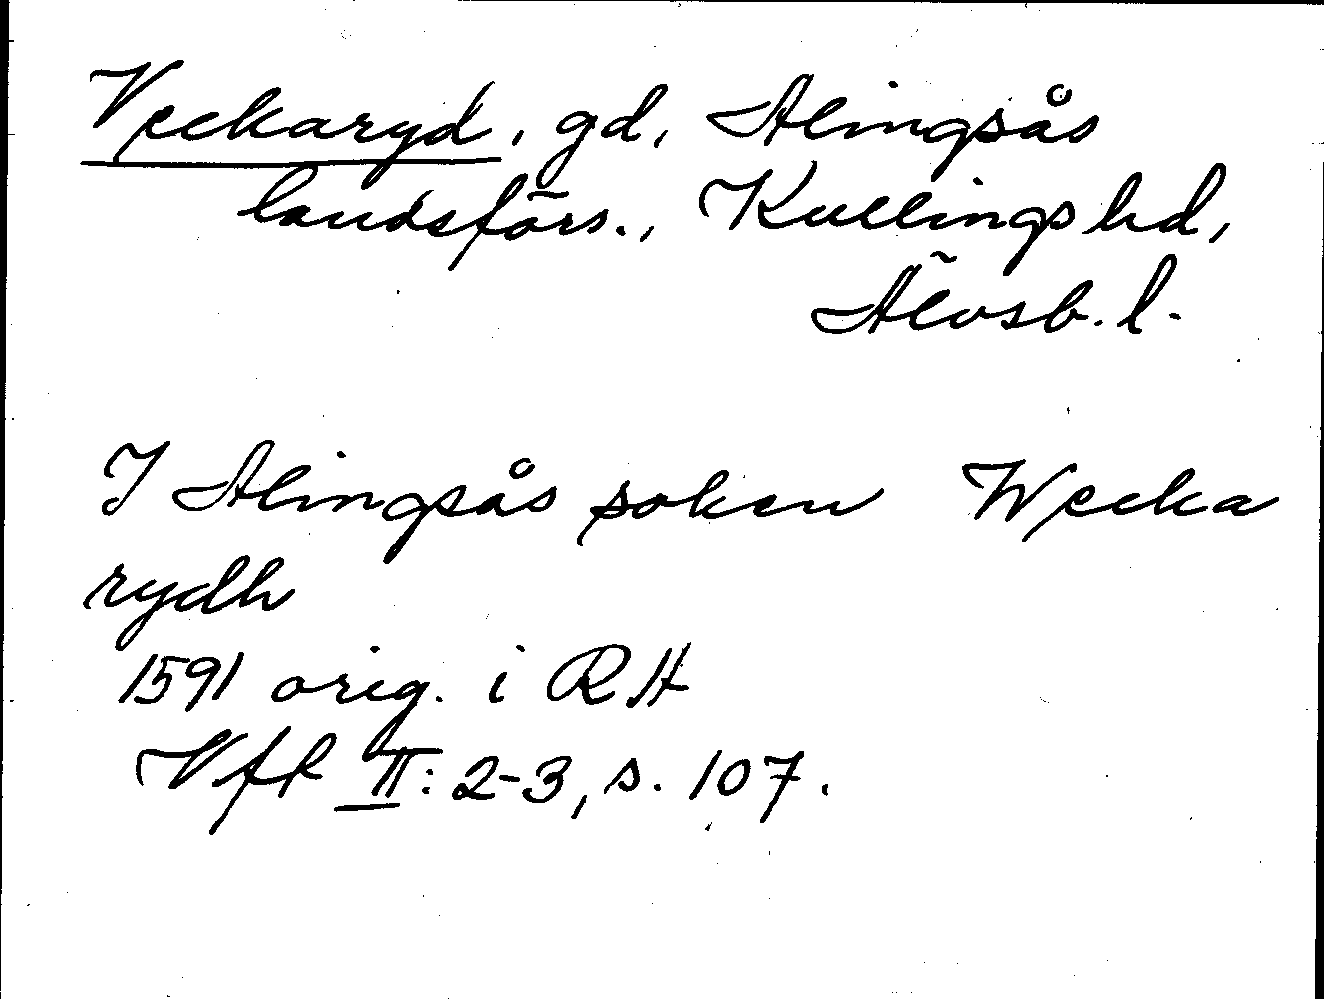 Veckaryd, gd, Alingsås
landsförs., Kullings hd,
Älvsb. l.
I Alingsås soken Wecka
rydh
1591 orig. i RA
Vff II: 2-3, s. 107.